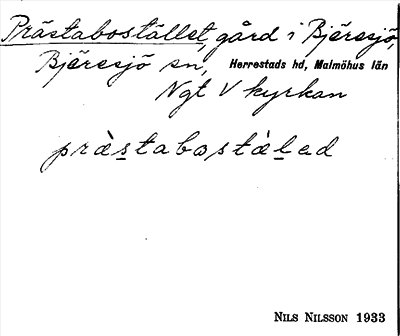 Prästabostället, gård i Bjäresjö,
Bjäresjö sn, Herrestads hd, Malmöhus län
Ngt V kyrkan
præ̀stabostæ̀led
NILS NILSSON 1933